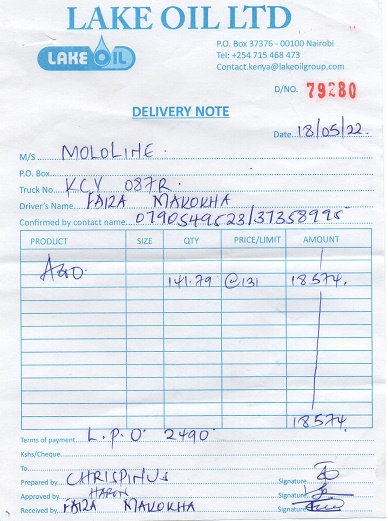 LAKE OIL LTD
LAKE OIL
P.O. Box 37376 - 00100 Nairobi
Tel: +254 715 468 473
Contact.kenya@lakeoilgroup.com
D/NO. 79280
DELIVERY NOTE
Date 18/05/22.
M/S MOLOLINE.
P.O. Box
Truck No. KCY 087R.
Driver's Name FAIZA MAKOKHA
Confirmed by contact name 0790549523/37358995
PRODUCT SIZE QTY PRICE/LIMIT AMOUNT
AGO 141.79 @131 18574.
18574.
Terms of payment L.P.O 2490.
Kshs/Cheque
To
Prepared by CHRISPINUS Signature
Approved by HARON Signature
Received by FAIZA MAKOKHA Signature